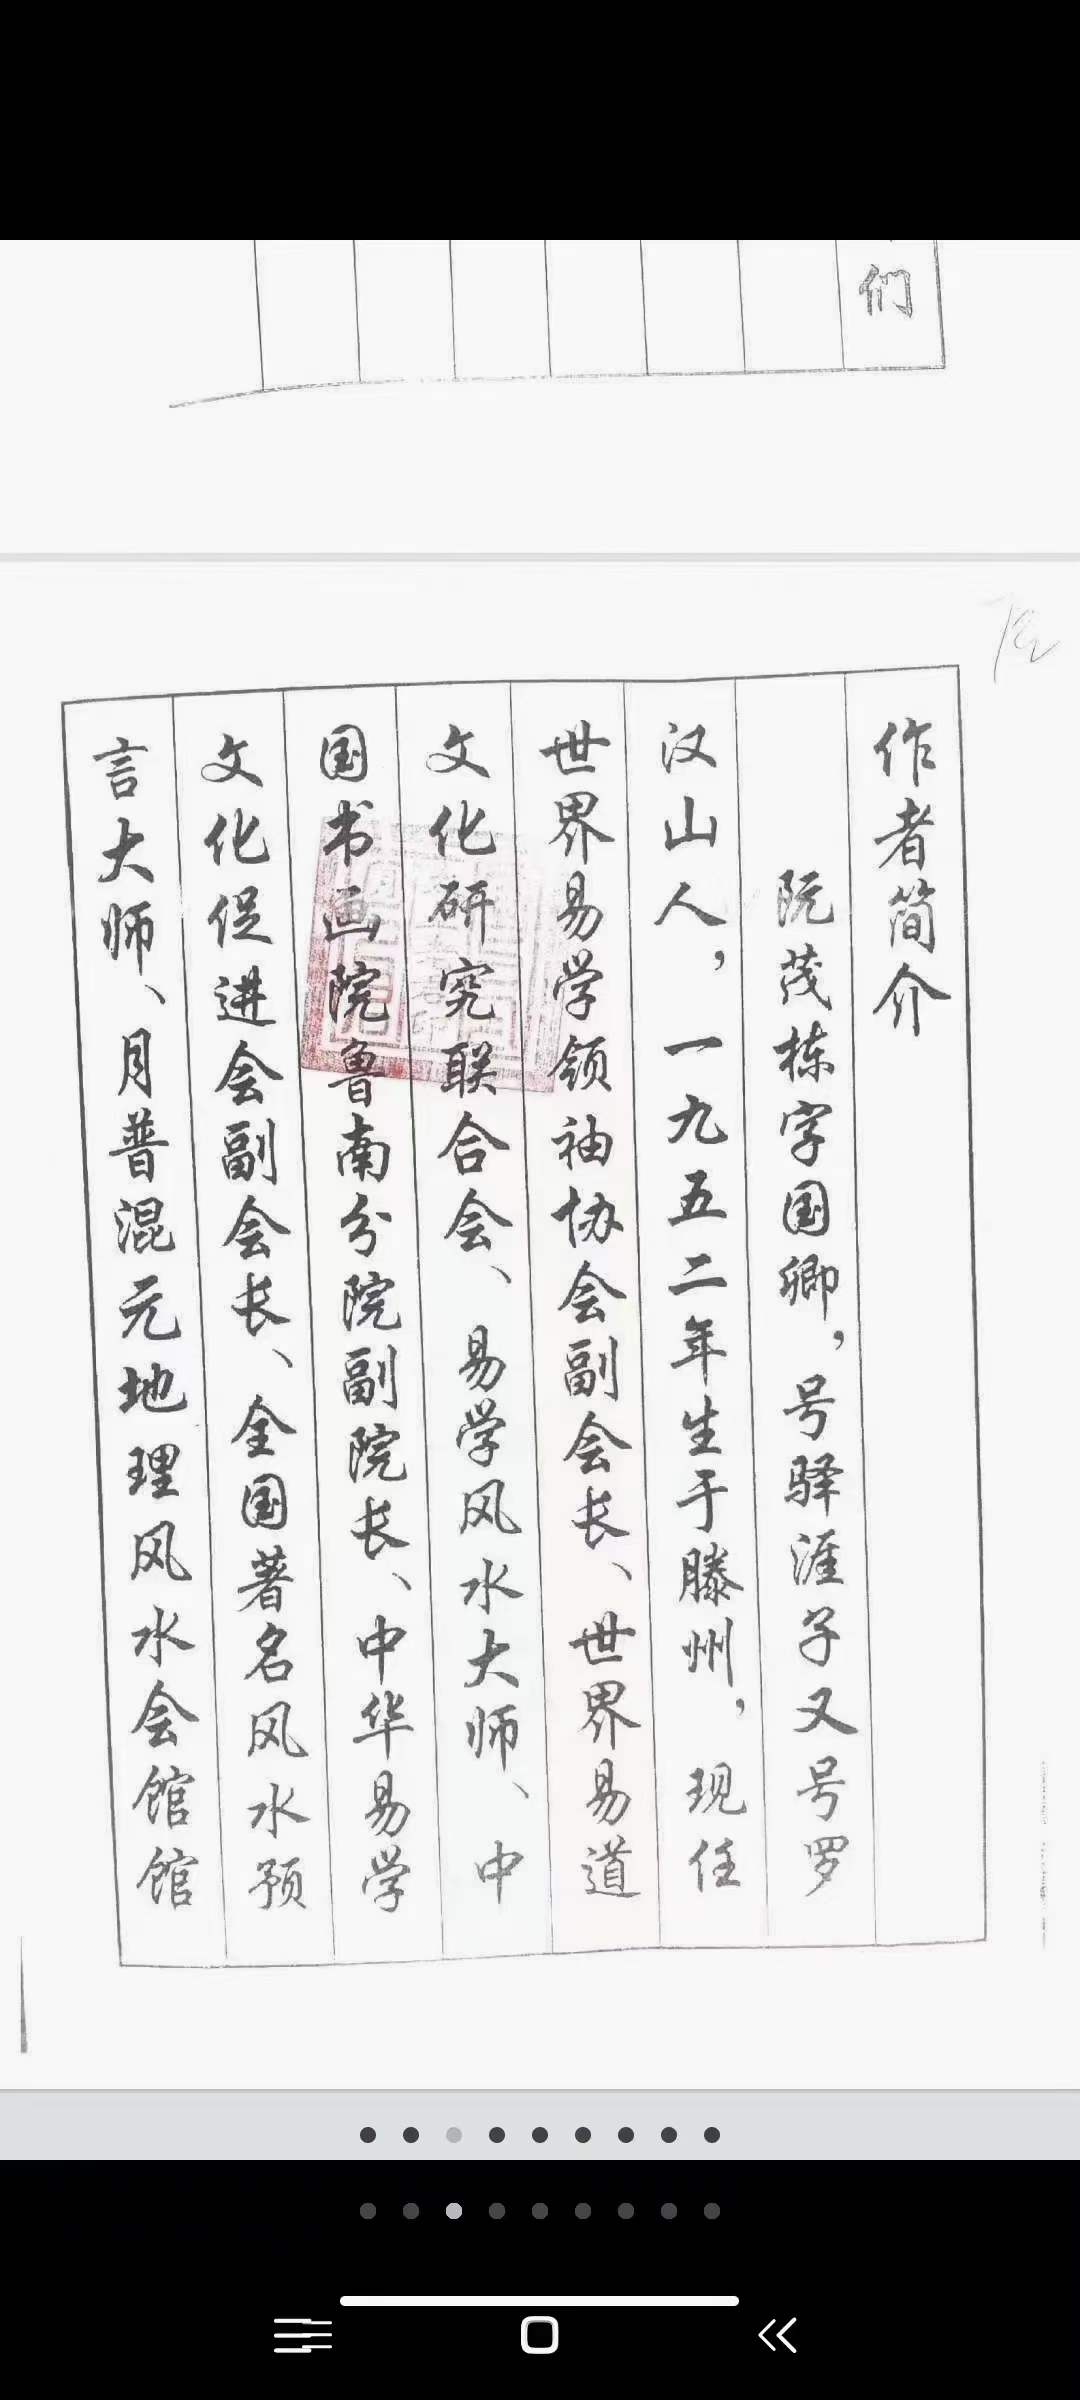 们
作者简介
阮茂栋字国卿，号驿涯子又号罗
汉山人，一九五二年生于滕州，现任
世界易学领袖协会副会长、世界易道
文化研究联合会、易学风水大师、中
国书画院鲁南分院副院长、中华易学
文化促进会副会长、全国著名风水预
言大师、月普混元地理风水会馆馆